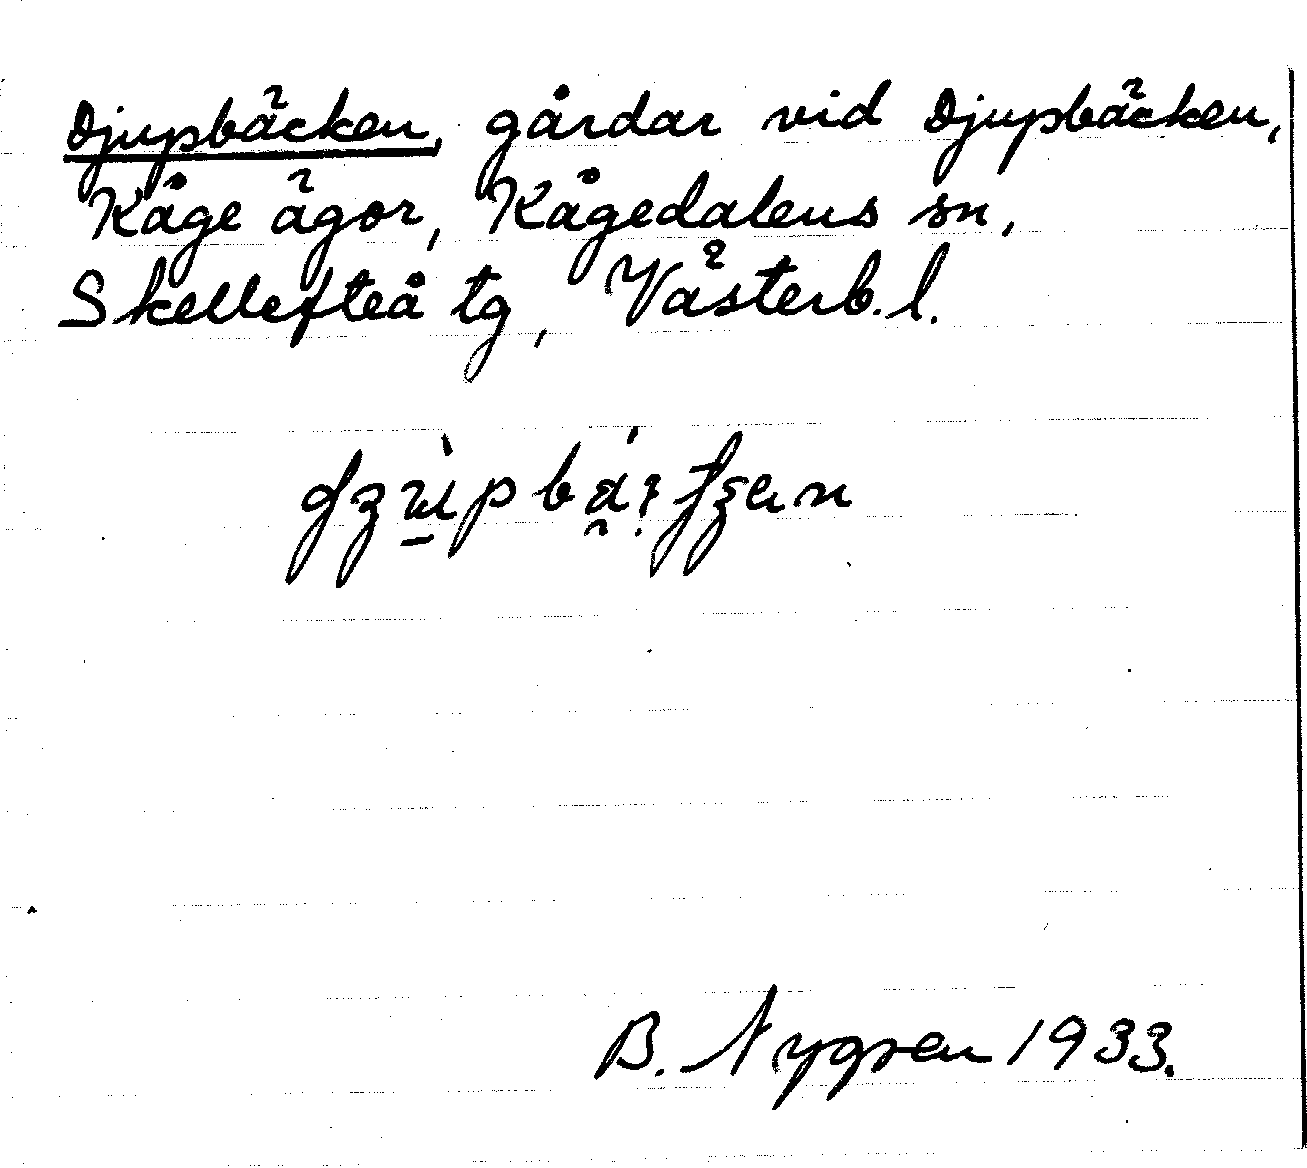 Djupbäcken, gårdar vid Djupbäcken,
Kåge ägor, Kågedalens sn,
Skellefteå tg, Västerb. l.
B. Nygren 1933.